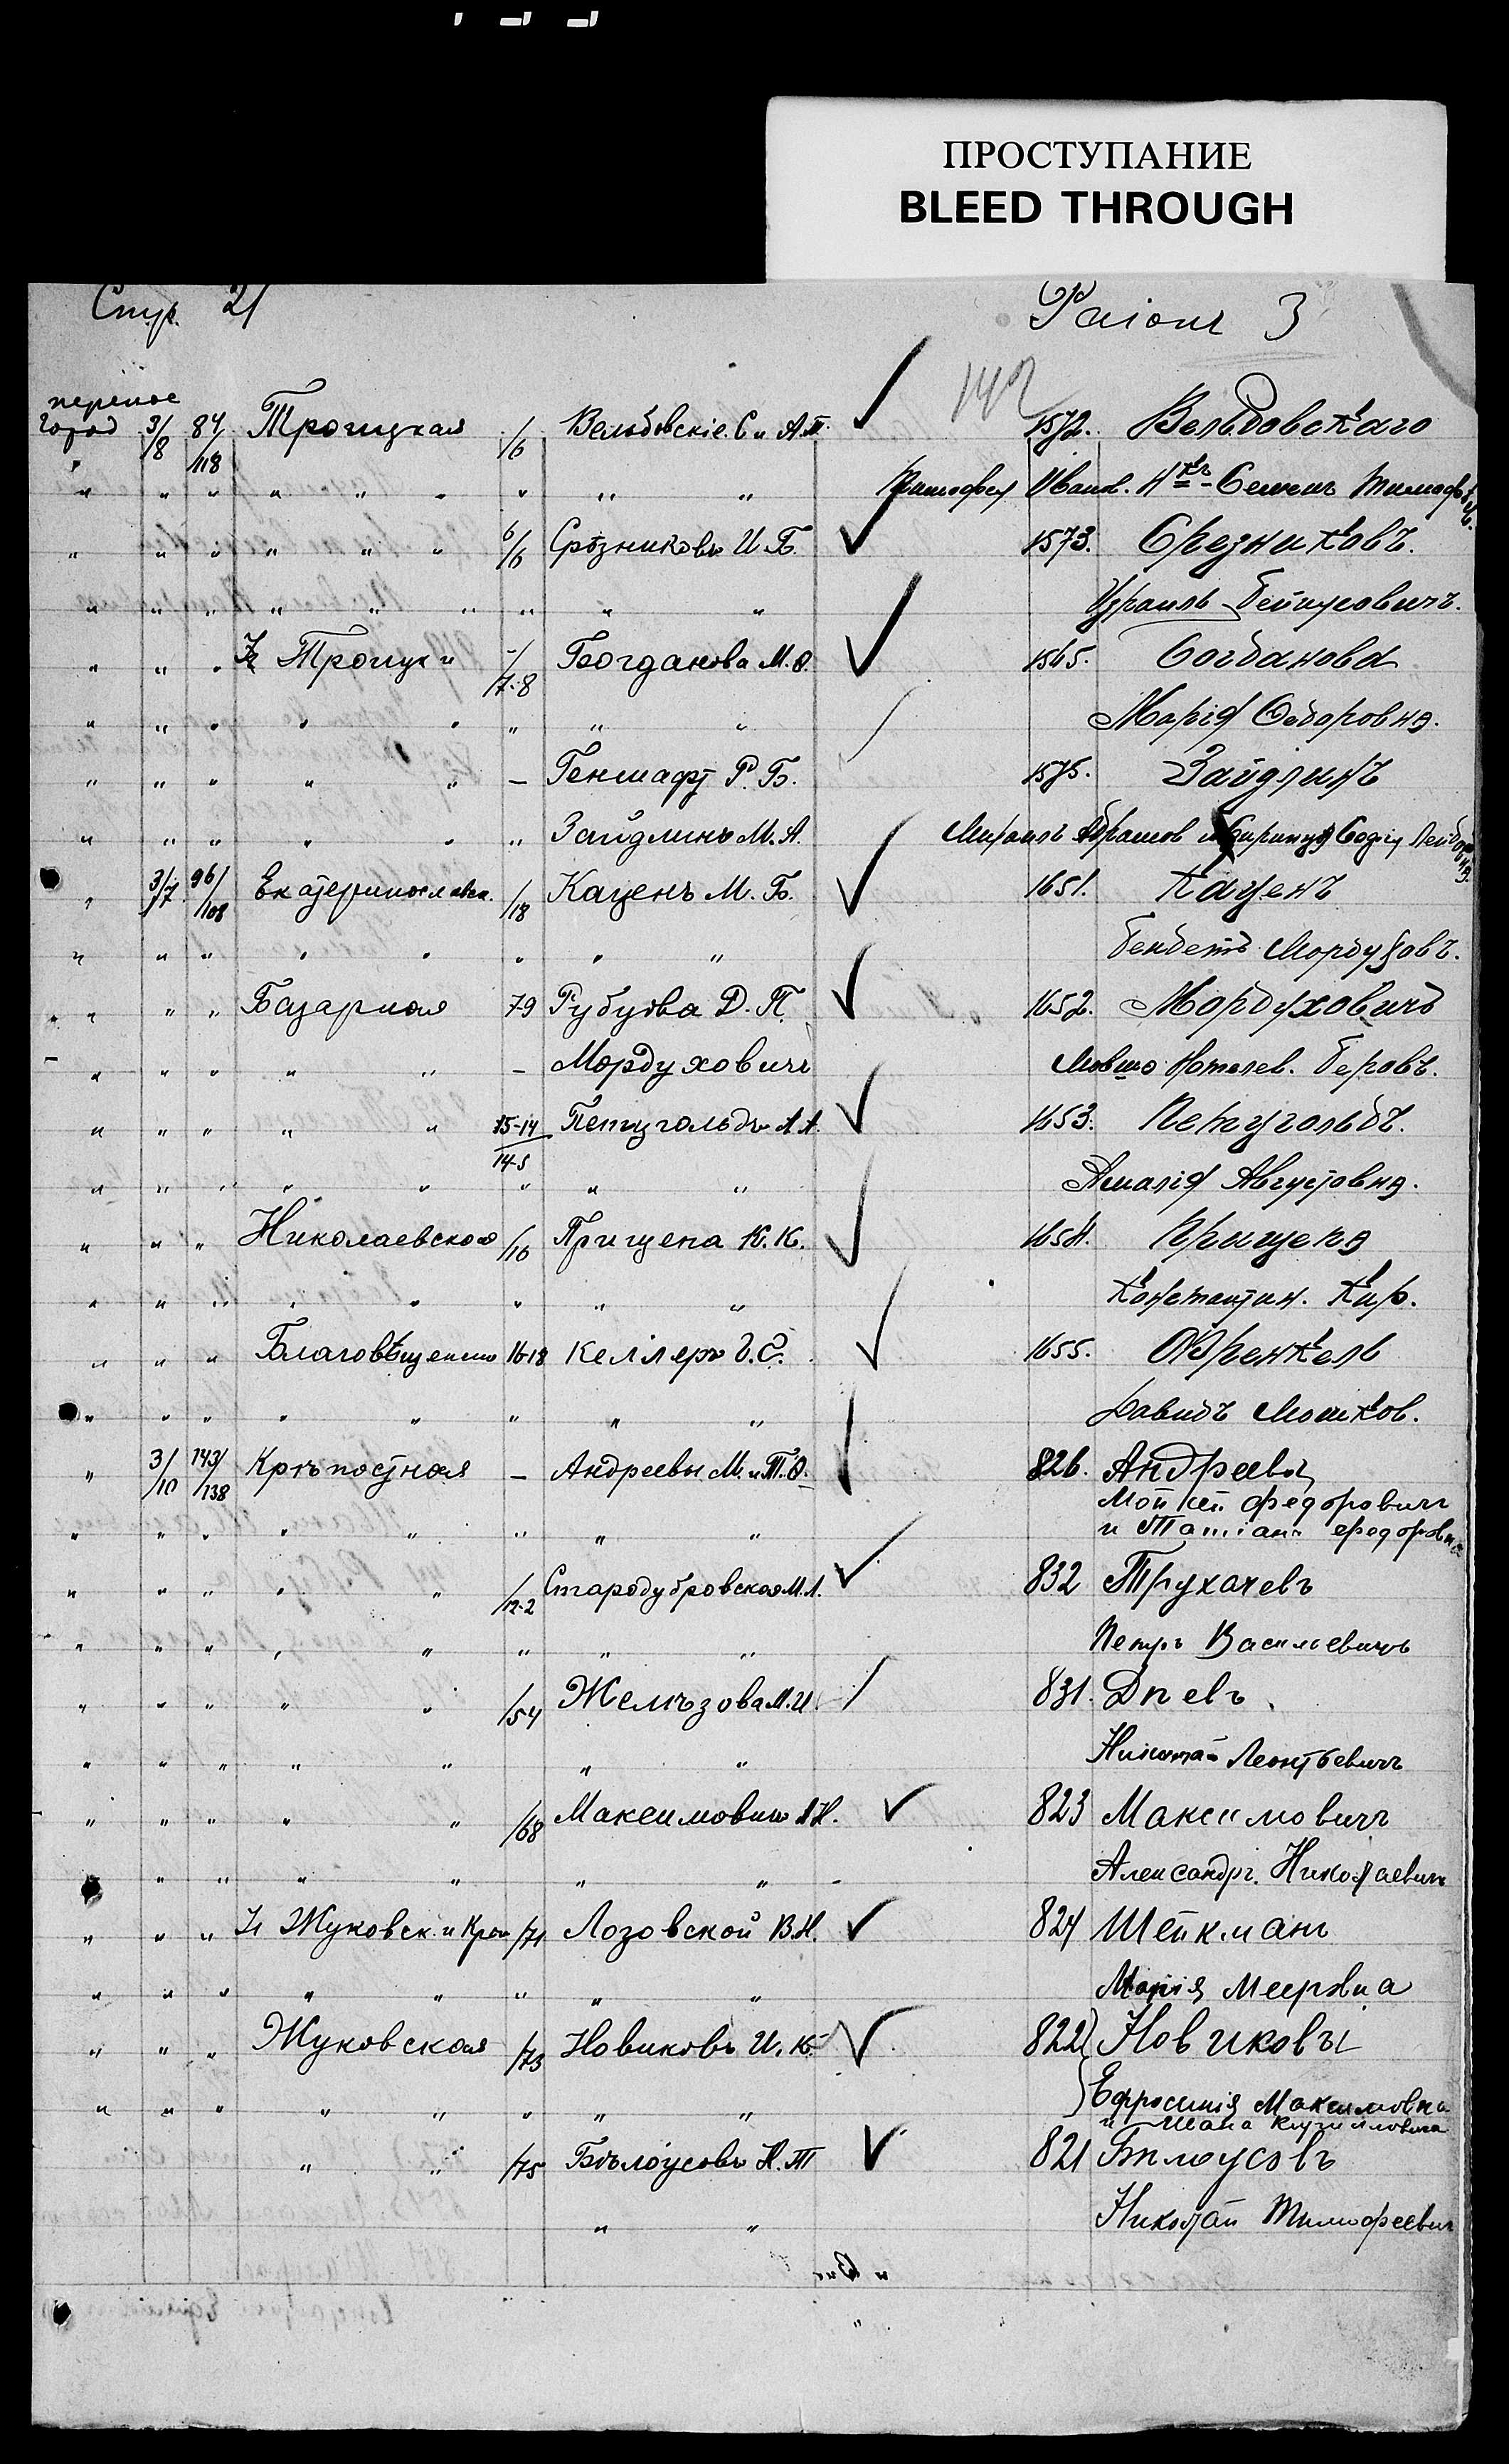 ПРОСТУПАНИЕ
BLEED THROUGH
Стр. 21 Раіонъ 3
перенос 142
город 3/8 84/118 Троицкая /6 Вельбовскіе С. и А.Т. 1572. Вельбовскаго
" " " " " " " " " Иванов. Н-къ Семенъ Тимофѣев.
" " " " " " 6/6 Срѣзниковъ И.Б. 1573. Срезниковъ.
" " " " " " " " " Израиль Бейнусовичъ.
" " " Уг Троицк и -/7-8 Богданова М.Ѳ. 1565. Богданова
" " " " " " " " Марія Ѳедоровна.
" " " " " — Геншафт Р.Б. 1575. Зайдлинъ
" " " " " " Зайдлинъ М.А. Михаилъ Абрамов Лейбовна
" 3/7 96/108 Екатеринославск. /18 Каценъ М.Б. 1651. Каценъ
" " " " " " " " Бендетъ Мордухов.
" " " Базарная 79 Рубцова Д.П. 1652. Мордуховичъ
" " " " " — Мордуховичъ Мовшо Нотелев. Беровъ.
" " " " " 15-14/14-5 Петцгольдъ А.А. 1653. Петцгольдъ.
" " " " " " " " Амалія Августовна.
" " " Николаевская /10 Прищепа К.К. 1654. Прищепа
" " " " " " " " Константин. Кир.
" " " Благовѣщенск 16-18 Келлеръ Г.С. 1655. Френкель
" " " " " " " " Давидъ Мошков.
" 3/10 143/138 Крѣпостная — Андреевы М. и Т.Ѳ. 826. Андреевы
Мойсей Федоровичъ
" " " " " " " " и Татіана Федоровна
" " " " " /12-2 Стародубровская М.Л. 832 Трухачевъ
" " " " " " " " Петръ Васильевичъ
" " " " " /54 Желѣзова М.И. 831. Дпевъ.
" " " " " " " Николай Леонтьевичъ
" " " " " /68 Максимовичъ А.Н. 823 Максимовичъ
" " " " " " " Александръ. Николаевичъ
" " " Уг Жуковск. и Креп /71 Лозовской В.Н. 824 Шейкманъ
" " " " " " " " Марія Мееровна
" " " Жуковская /73 Новиковъ И.К. 822 Новиковы
" " " " " " " " Ефросинія Максимовна
и Ивана Кирилловича
" " /75 Бѣлоусовъ Н.Т 821 Бѣлоусовъ
" " Николай Тимофеевич